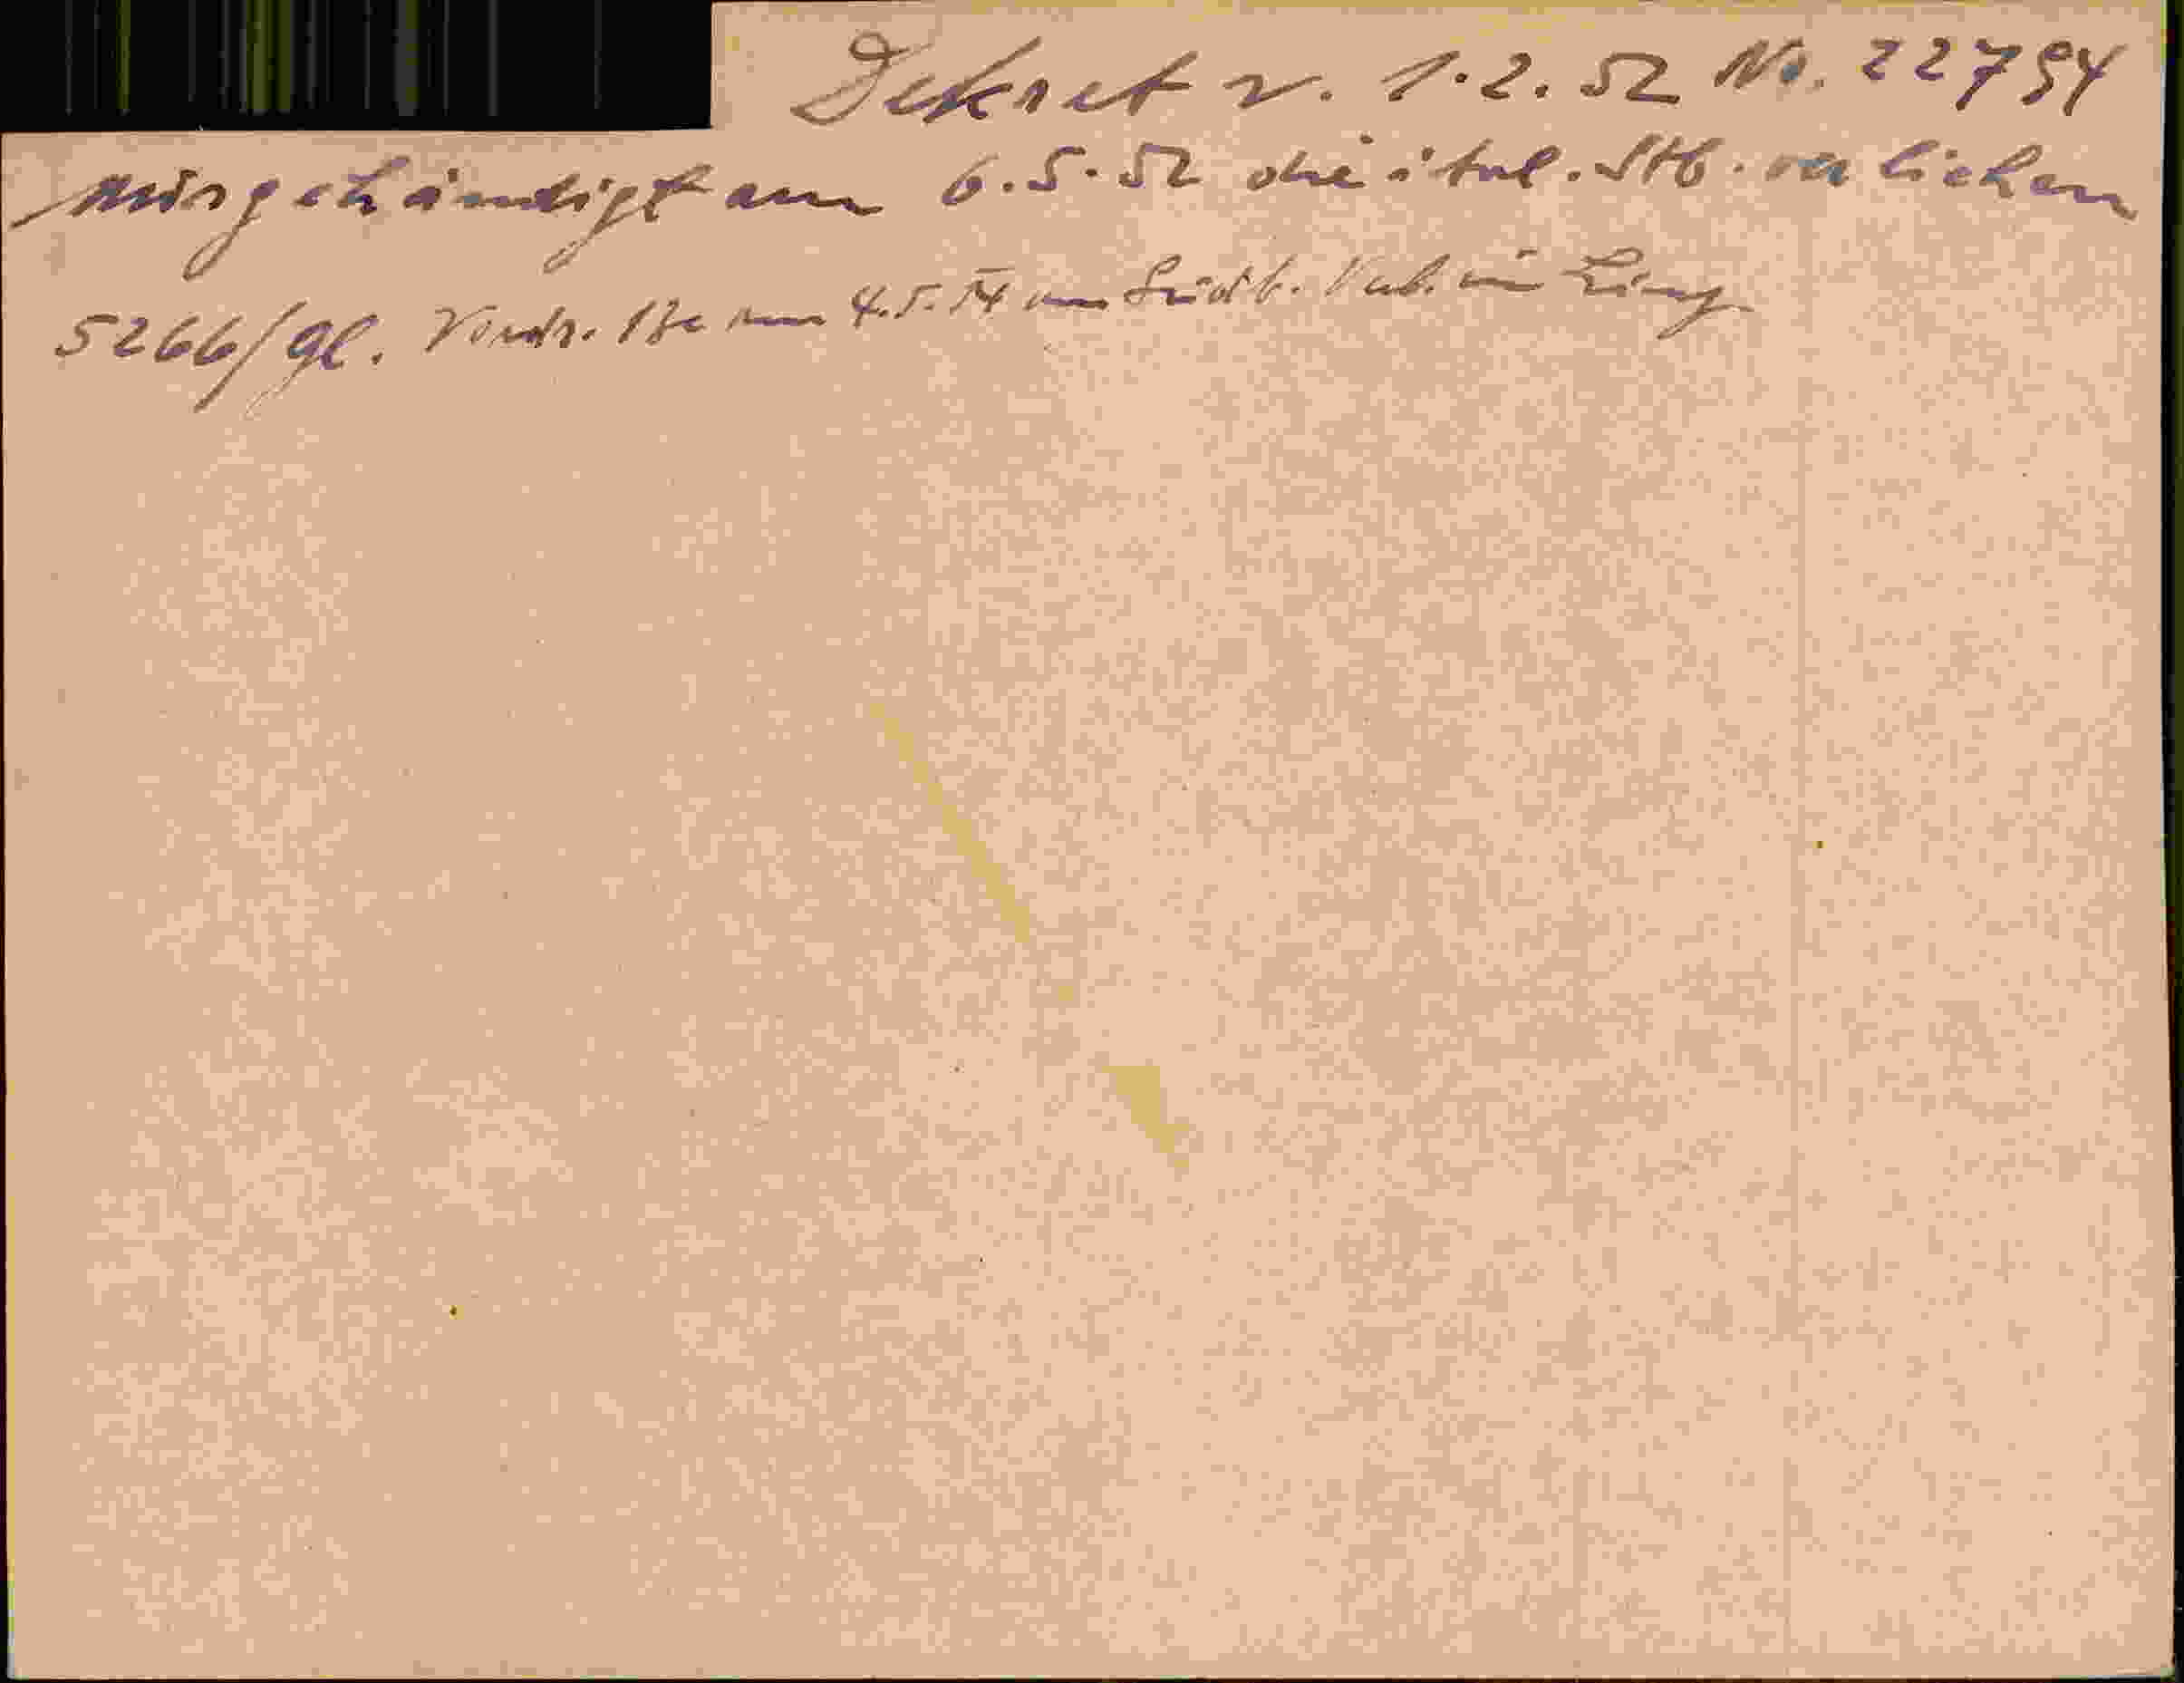 Dekret v. 1.2.52 No. 22794
ausgehändigt am 6.5.52 die ital. Stb. verliehen
5266/gl. Vordr. 13c am 4.5.54 an Südt. Verb. in Linz